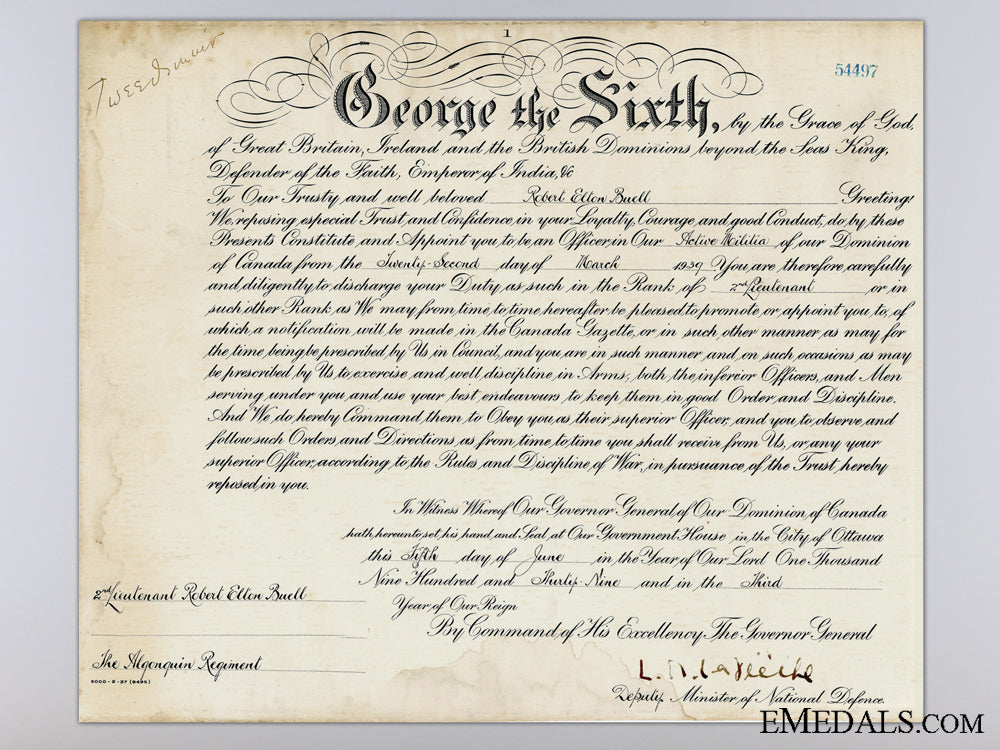 Tweedsmuir
1
54497
George the Sixth, by the Grace of God,
of Great Britain, Ireland and the British Dominions beyond the Seas King,
Defender of the Faith, Emperor of India, &c
To Our Trusty and well beloved Robert Elton Buell Greeting:
We, reposing especial Trust and Confidence, in your Loyalty, Courage, and good Conduct, do, by these
Presents Constitute, and Appoint you to be, an Officer, in Our Active Militia of our Dominion
of Canada from the Twenty-Second day of March 1939 You are therefore, carefully
and diligently to discharge your Duty as such in the Rank of 2nd Lieutenant or in
such other Rank, as We may from time, to time, hereafter be pleased to promote or appoint you to, of
which a notification will be made in the Canada Gazette, or in such other manner as may for
the time, being be prescribed by Us in Council, and you are in such manner and on such occasions as may
be prescribed by Us, to exercise and well discipline in Arms, both the inferior Officers, and Men
serving under you and use your best endeavours to keep them in good Order and Discipline.
And We do hereby Command them to Obey you as their superior Officer, and you to observe and
follow such Orders and Directions, as from time, to time you shall receive from Us, or any your
superior Officer, according to the Rules and Discipline of War, in pursuance of the Trust hereby
reposed in you.
In Witness Whereof Our Governor General of Our Dominion of Canada
hath hereunto set his hand and Seal at Our Government House in the City of Ottawa
this Fifth day of June in the Year of Our Lord One Thousand
Nine Hundred and Thirty-Nine and in the Third
Year of Our Reign
By Command of His Excellency The Governor General
2nd Lieutenant Robert Elton Buell
The Algonquin Regiment
5000-2-37 (9495)
Deputy Minister of National Defence.
EMEDALS.COM